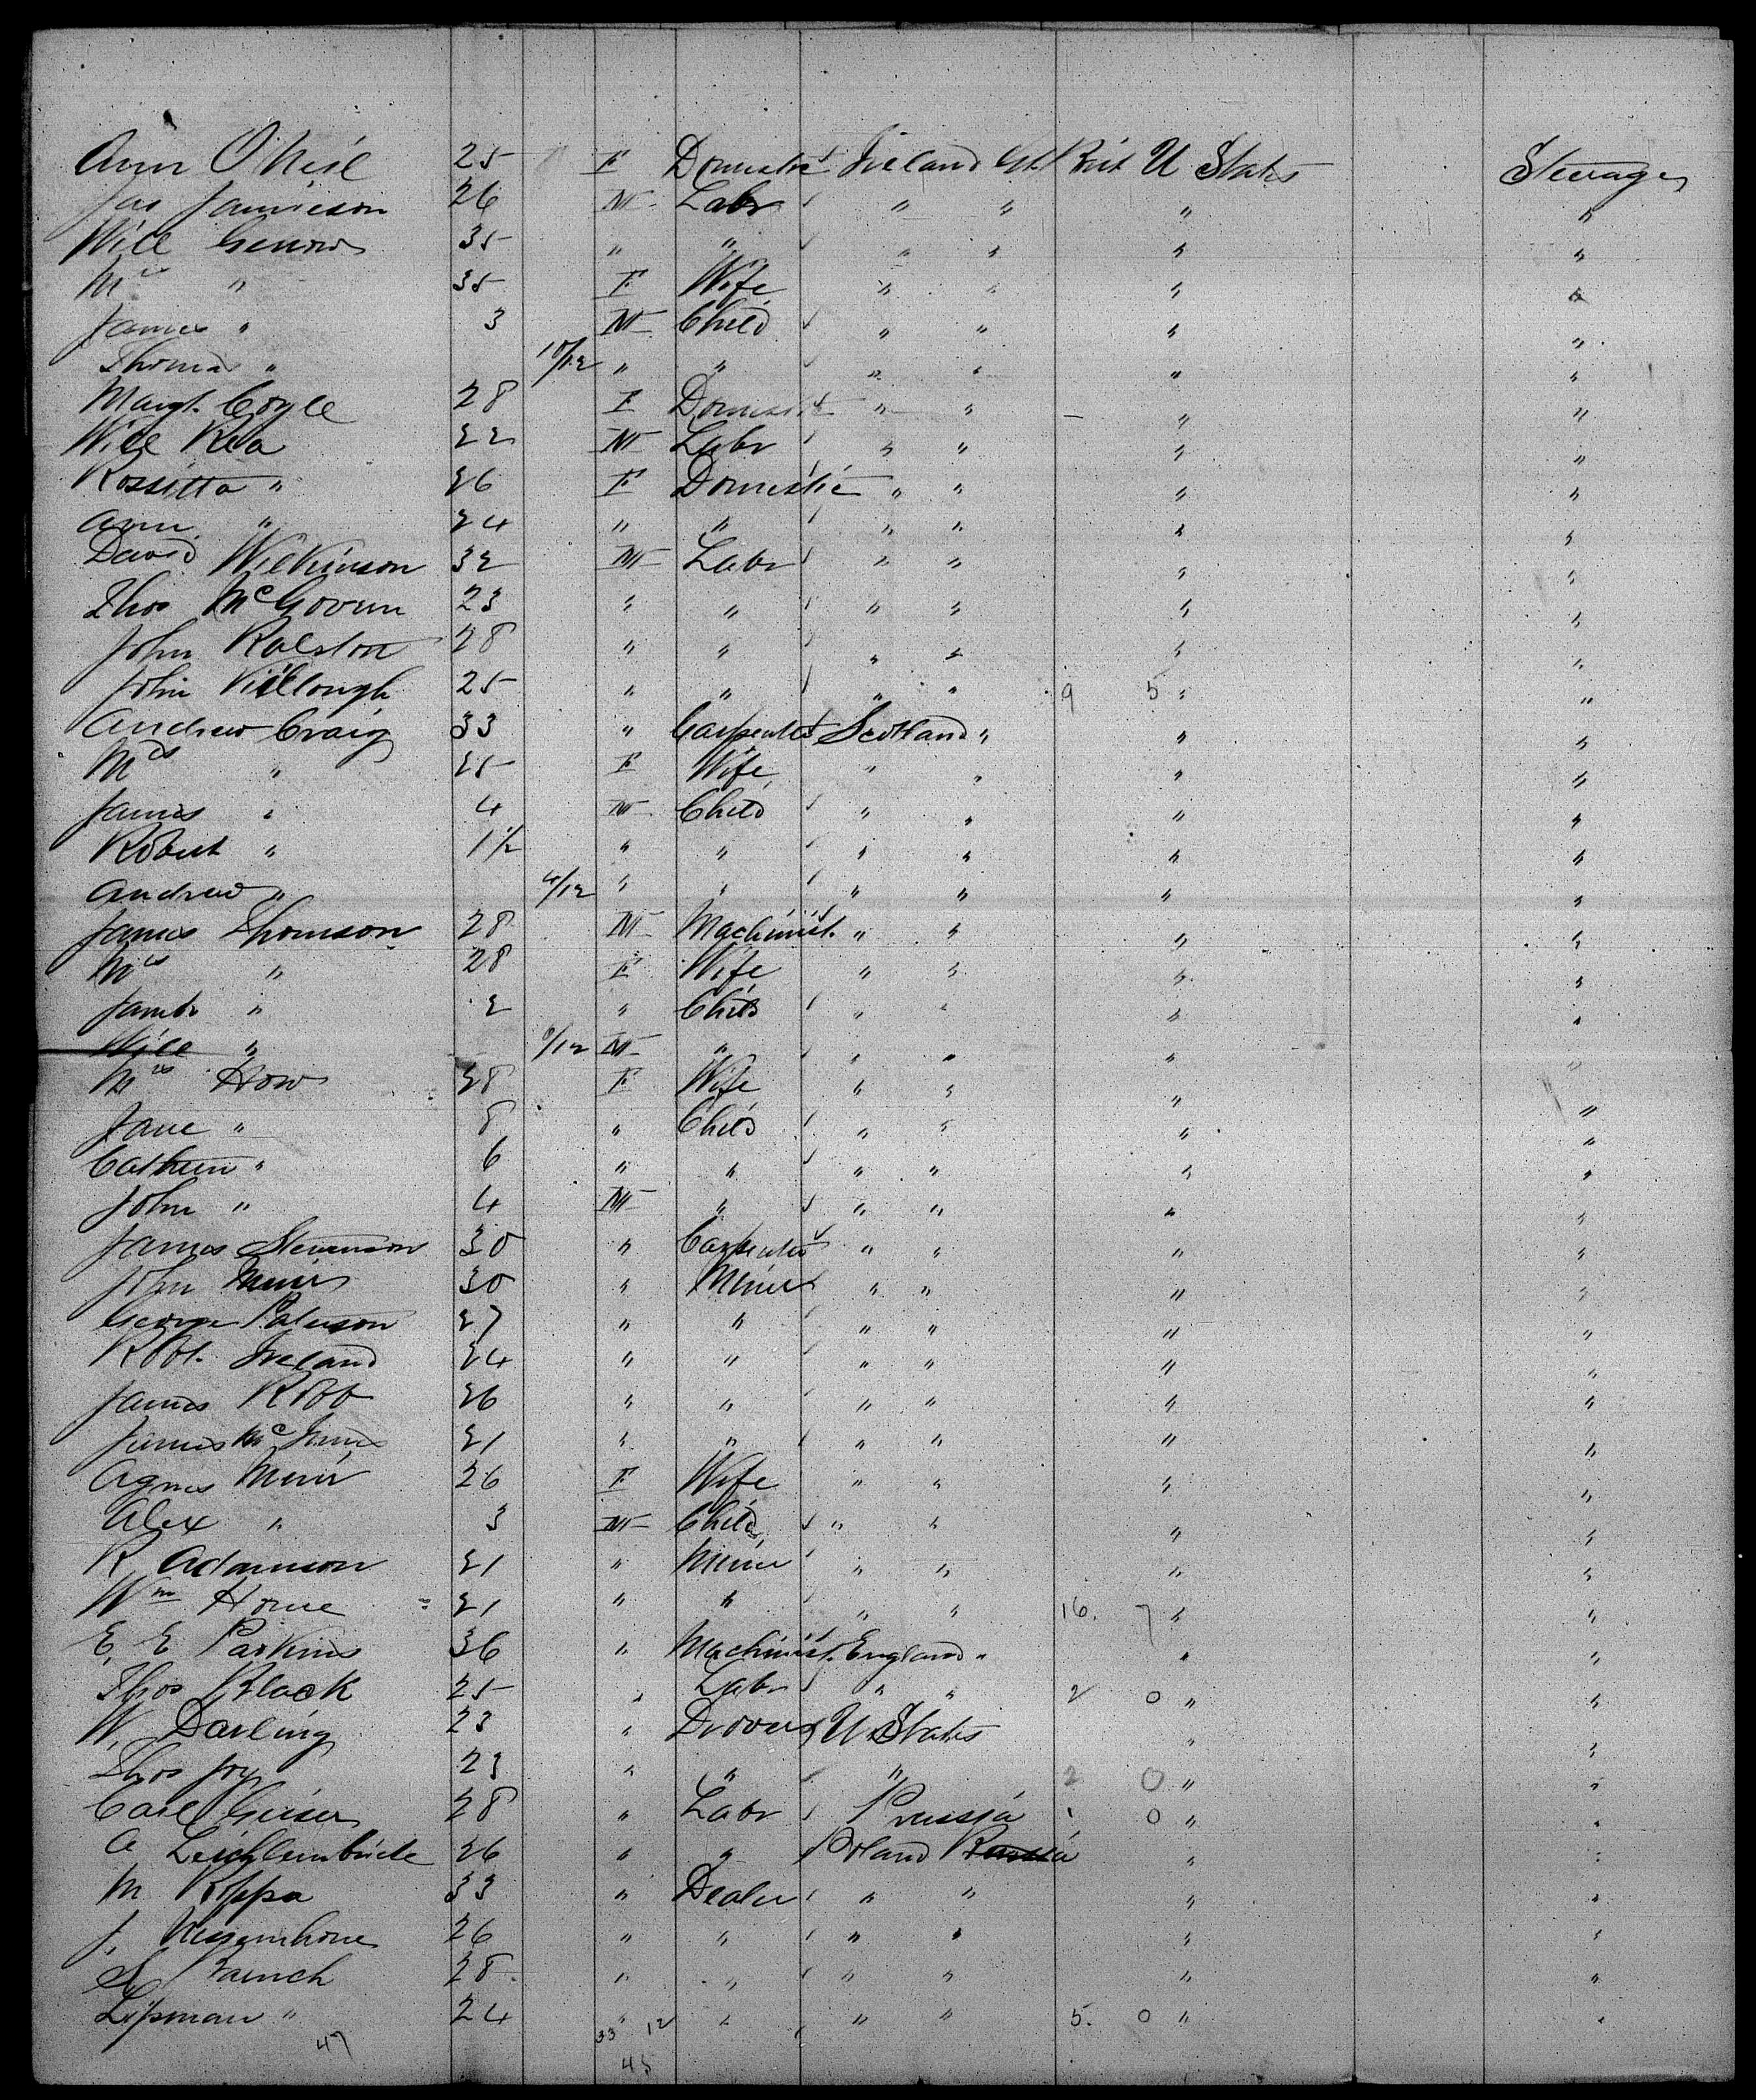 Ann O'Neil 25 F Domestic Ireland Gt Brit U States Steerage
Jas Jamieson 26 M Labr " " " "
Will 35 " " " " " "
Mrs " 35 F Wife " " " "
James " 3 M Child " " " "
Thomas " 10/12 " " " " " "
Margt. Coyle 28 F Domestic " " " "
Will Rea 22 M Labr " " " "
Rossitta " 26 F Domestic " " " "
Ann " 24 " " " " " "
David Wilkinson 32 M Labr " " " "
Thos McGovern 23 " " " " " "
John Ralston 28 " " " " " "
John Killough 25 " " " " 9 5 " "
Andrew Craig 33 " Carpenter Scotland " " "
Mrs " 25 F Wife " " " "
James " 4 M Child " " " "
Robert " 1 1/2 " " " " " "
Andrew " /12 " " " " " "
James Thomson 28 M Machinist. " " " "
Mrs " 28 F Wife " " " "
" 2 " Child " " " "
Will " /12 M " " " " "
Mrs How 28 F Wife " " " "
Jane " 8 " Child " " " "
Cathrin " 6 " " " " " "
John " 4 M " " " " "
James Stevenson 30 " Carpenter " " " "
John Muir 30 " Miner " " " "
George Paterson 27 " " " " " "
Robt. Ireland 24 " " " " " "
James Robb 26 " " " " " "
James Mc 21 " " " " " "
Agnes Muir 26 F Wife " " " "
Alex " 3 M Child " " " "
R Adamson 21 " Miner " " " "
Wm Howe 21 " " " " 16. 7 " "
E. E Parkins 36 " Machinist. England " " "
Thos Black 25 " Labr " " 2 0 " "
W. Darling 23 " Drover U States " "
Thos Joy 23 " " " 2 0 " "
Carl Geiser 28 " Labr Prussia 1 0 " "
A 26 " " Poland Russia " "
M Koppa 33 " Dealer " " " "
J. 26 " " " " " "
S 28 " " " " " "
Lipman " 24 " " " " 5. 0 " "
47 33 12
45